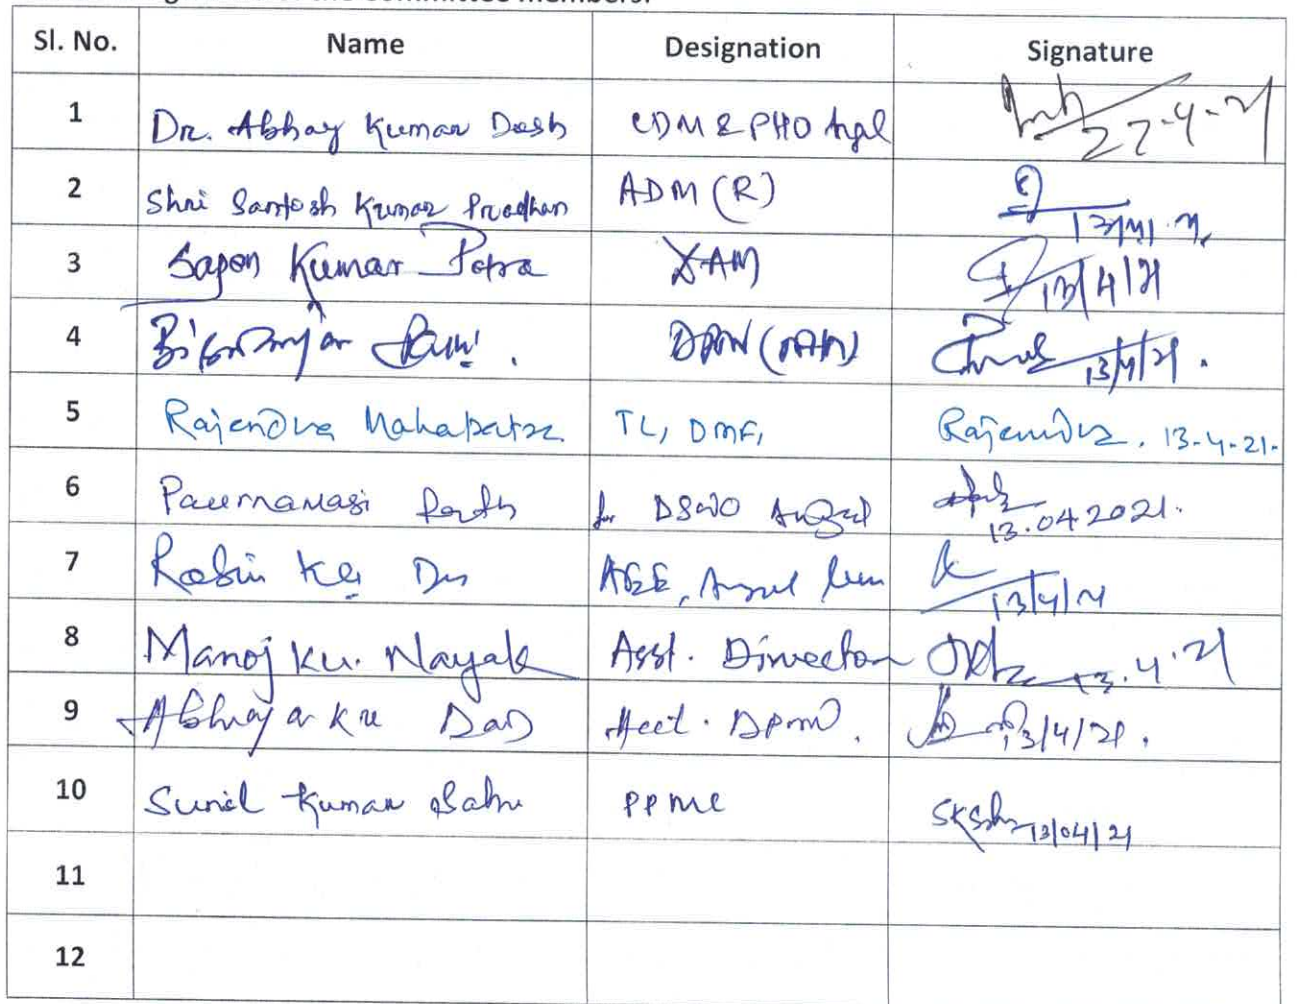 Sl. No. Name Designation Signature
1 Dr. Abhay Kumar Dash CDM & PHO Agl 27-4-21
2 Shri Santosh Kumar Pradhan ADM (R)
3 Sapan Kumar Patra DAM 13/4/21
4 13/4/21.
5 Rajendra Mahapatra TL, DMF, Rajendra. 13-4-21.
6 Paurnamasi for DSWO Angul 13.04.2021.
7 Rabin Ku Das AEE, Angul 13/4/21
8 Manoj Ku. Nayak Asst. Director 13.4.21
9 Abhaya Ku Das Acct. DPMU. 13/4/21.
10 Sunil Kumar Sahu PPMC SKSahu 13/04/21
11
12